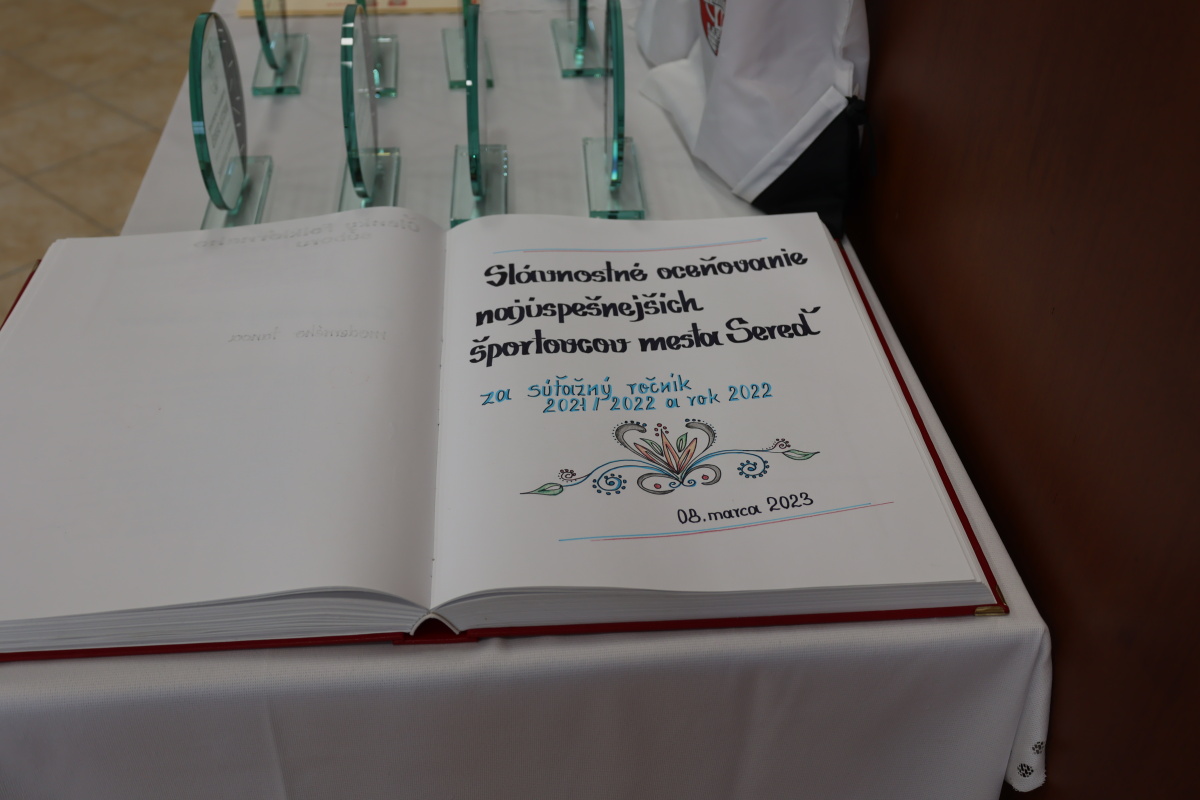 Slávnostné oceňovanie
najúspešnejších
športovcov mesta Sereď
za súťažný ročník
2021 / 2022 a rok 2022
08. marca 2023